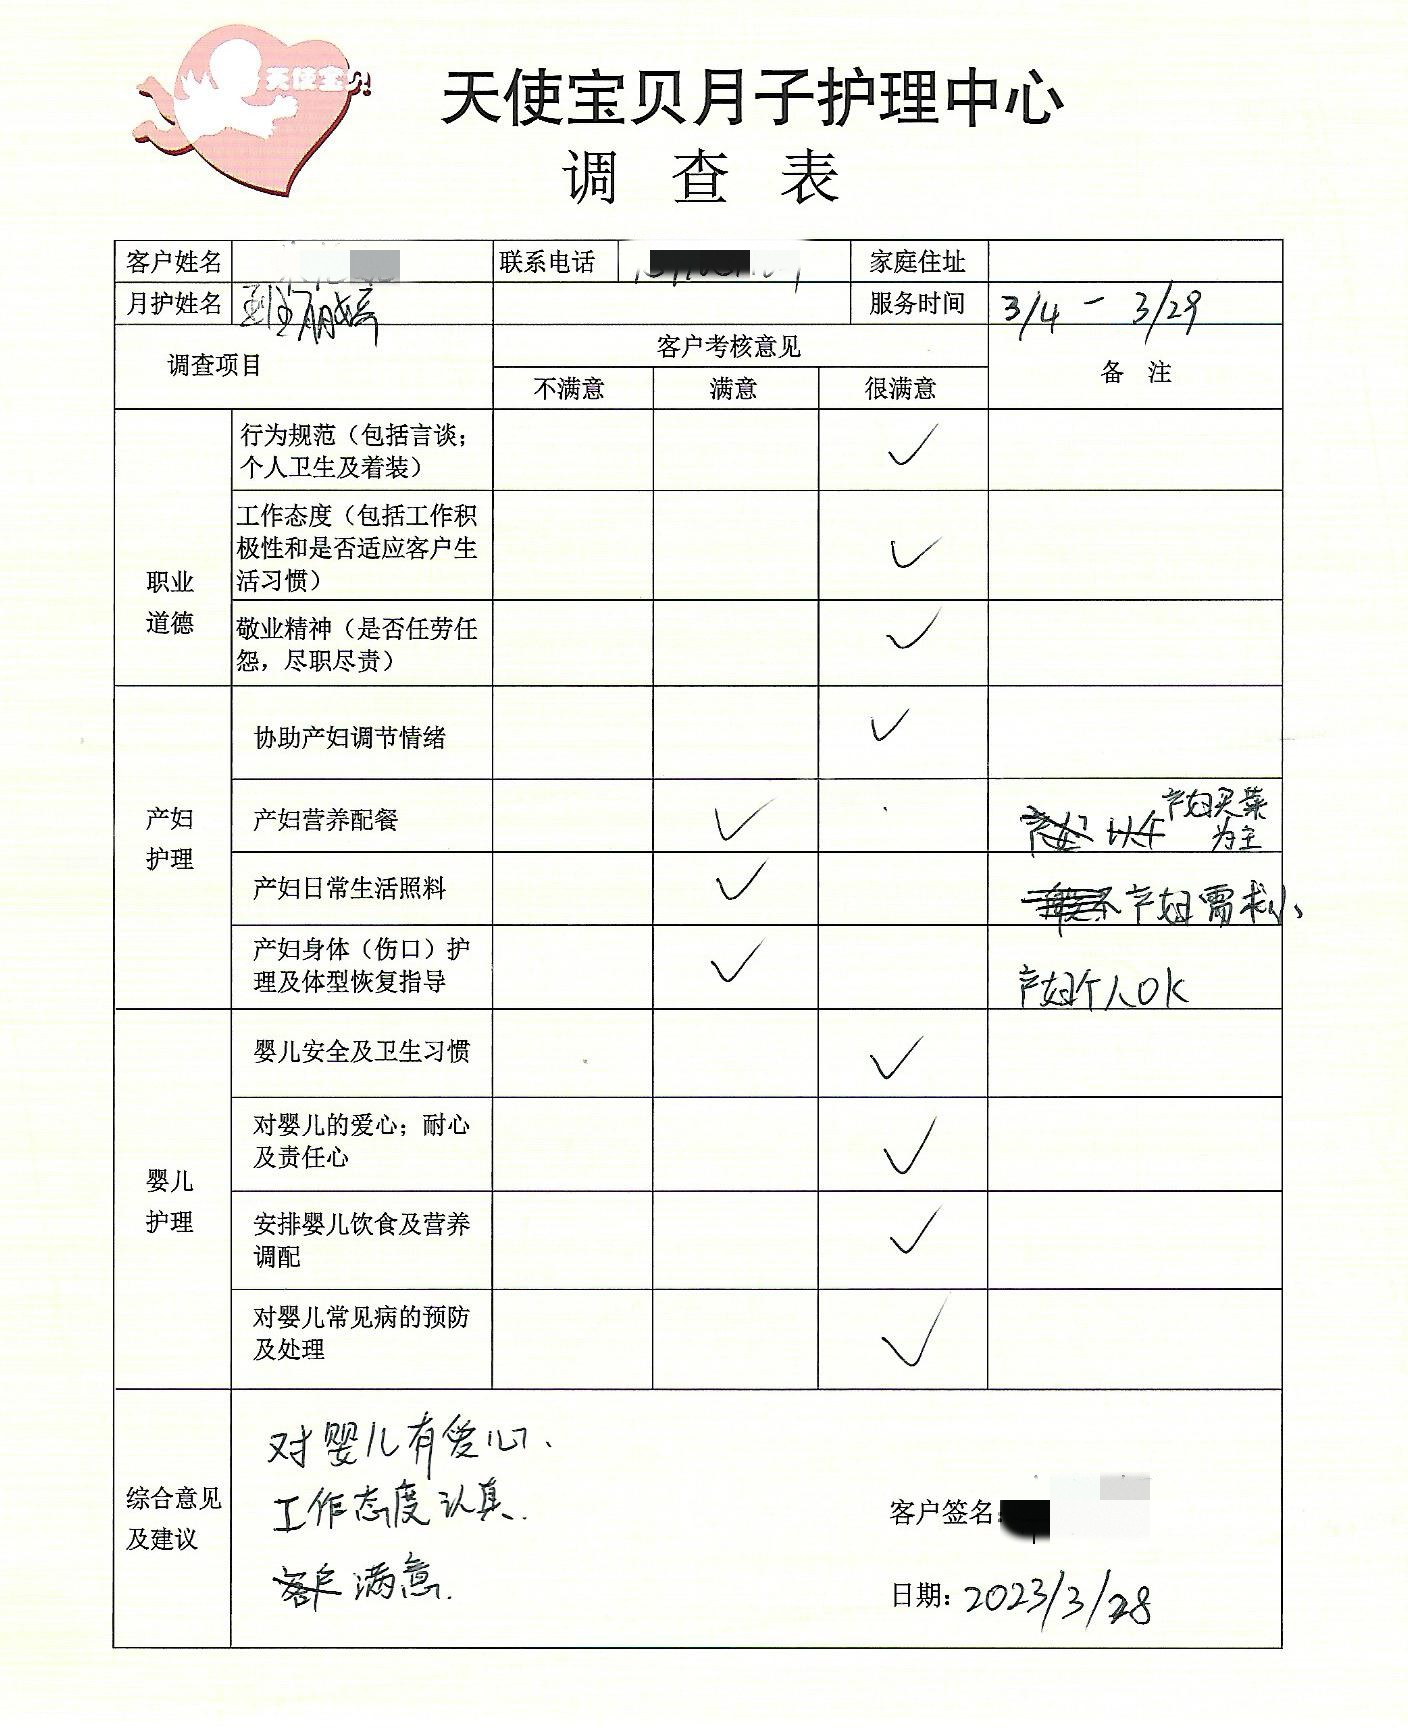 天使宝贝
天使宝贝月子护理中心
调 查 表
客户姓名 联系电话 家庭住址
月护姓名 丽婷 服务时间 3/4 - 3/29
调查项目 客户考核意见 备 注
不满意 满意 很满意
职业
道德
行为规范（包括言谈；
个人卫生及着装） ✓
工作态度（包括工作积
极性和是否适应客户生
活习惯） ✓
敬业精神（是否任劳任
怨，尽职尽责） ✓
产妇
护理
协助产妇调节情绪 ✓
产妇营养配餐 ✓ 产妇买菜
为主
产妇日常生活照料 ✓ 产妇需求小、
产妇身体（伤口）护
理及体型恢复指导 ✓ 产妇个人OK
婴儿
护理
婴儿安全及卫生习惯 ✓
对婴儿的爱心；耐心
及责任心 ✓
安排婴儿饮食及营养
调配 ✓
对婴儿常见病的预防
及处理 ✓
综合意见
及建议
对婴儿有爱心、
工作态度认真.
满意.
客户签名:
日期: 2023/3/28